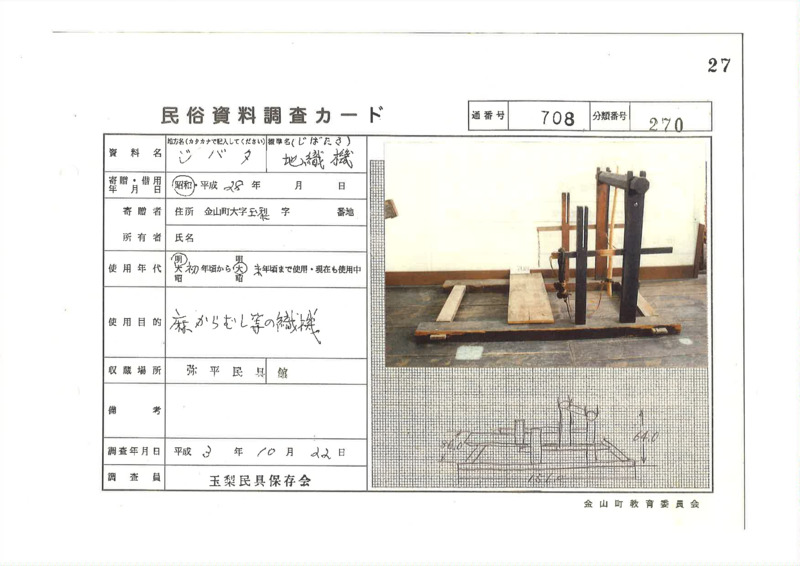 27
民俗資料調査カード
通番号 708 分類番号 270
資料名 地方名(カタカナで記入してください) ジバタ 標準名(じばたき) 地織機
寄贈・借用年月日 昭和・平成 28 年 月 日
寄贈者 住所 金山町大字玉梨 字 番地
所有者 氏名
使用年代 明大昭 初年頃から 明大昭 末年頃まで使用・現在も使用中
使用目的 麻からむし等の織機
収蔵場所 弥平民具館
備考
調査年月日 平成 3 年 10 月 22 日
調査員 玉梨民具保存会
64.0
151.4
金山町教育委員会